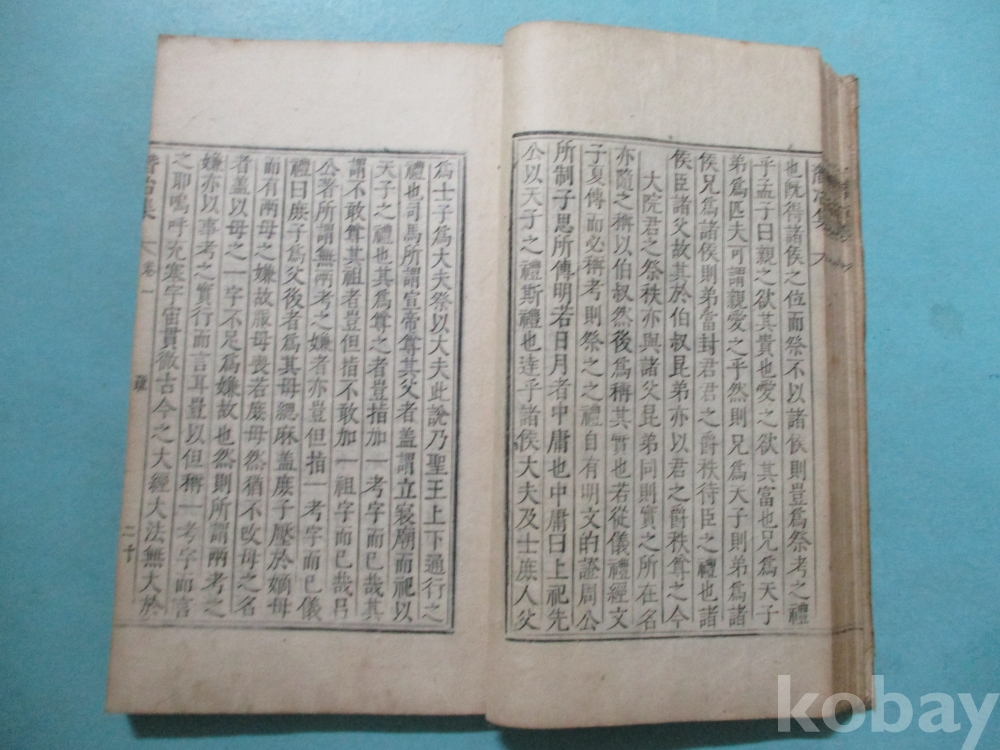 也旣得諸侯之位而祭不以諸侯則豈爲祭考之禮
乎孟子曰親之欲其貴也愛之欲其富也兄爲天子
弟爲匹夫可謂親愛之乎然則兄爲天子則弟爲諸
侯兄爲諸侯則弟當封君君之爵秩待臣之禮也諸
侯臣諸父故其於伯叔昆弟亦以君之爵秩尊之今
大院君之祭秩亦與諸父昆弟同則實之所在名
亦隨之稱以伯叔然後爲稱其實也若從儀禮經文
子夏傳而必稱考則祭之之禮自有明文的證周公
所制子思所傳明若日月者中庸也中庸曰上祀先
公以天子之禮斯禮也達乎諸侯大夫及士庶人父
爲士子爲大夫祭以大夫此說乃聖王上下通行之
禮也司馬所謂宣帝尊其父者蓋謂立寢廟而祀以
天子之禮也其爲尊之者豈指加一考字而已哉其
謂不敢尊其祖者豈但指不敢加一祖字而已哉呂
公著所謂無兩考之嫌者亦豈但指一考字而已儀
禮曰庶子爲父後者爲其母緦麻蓋庶子壓於嫡母
而有兩母之嫌故服母喪若庶母然猶不改母之名
者蓋以母之一字不足爲嫌故也然則所謂兩考之
嫌亦以事考之實行而言耳豈以但稱一考字而言
之耶嗚呼充塞宇宙貫徹古今之大經大法無大於
卷一
疏
二十
kobay